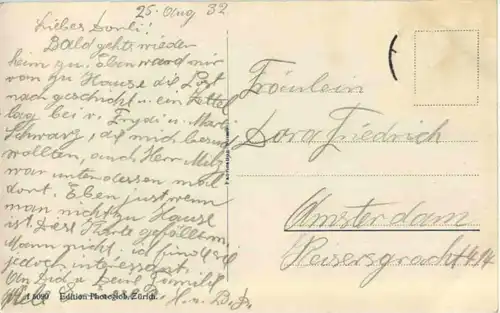 25. Aug 32
Liebes Dorli!
Bald gehts wieder
heim zu. Eben ward mir
von zu Hause die Post
nach geschickt... ein Zettel
lag bei v. Frydi u. Marti
Schwarz, die mich besuchen
wollten, auch Herr Metz
war unterdessen mal
dort. Eben just wenn
man nicht zu Hause
ist. Diese Karte gefällt
Mann nicht. ich finde sie
jedoch interessant.
An Did u Eure Familie
Viele
H. u. B. F.
Fräulein
Dora Friedrich
Amsterdam
Keisersgracht 494
J 6090 Edition Photoglob, Zürich.